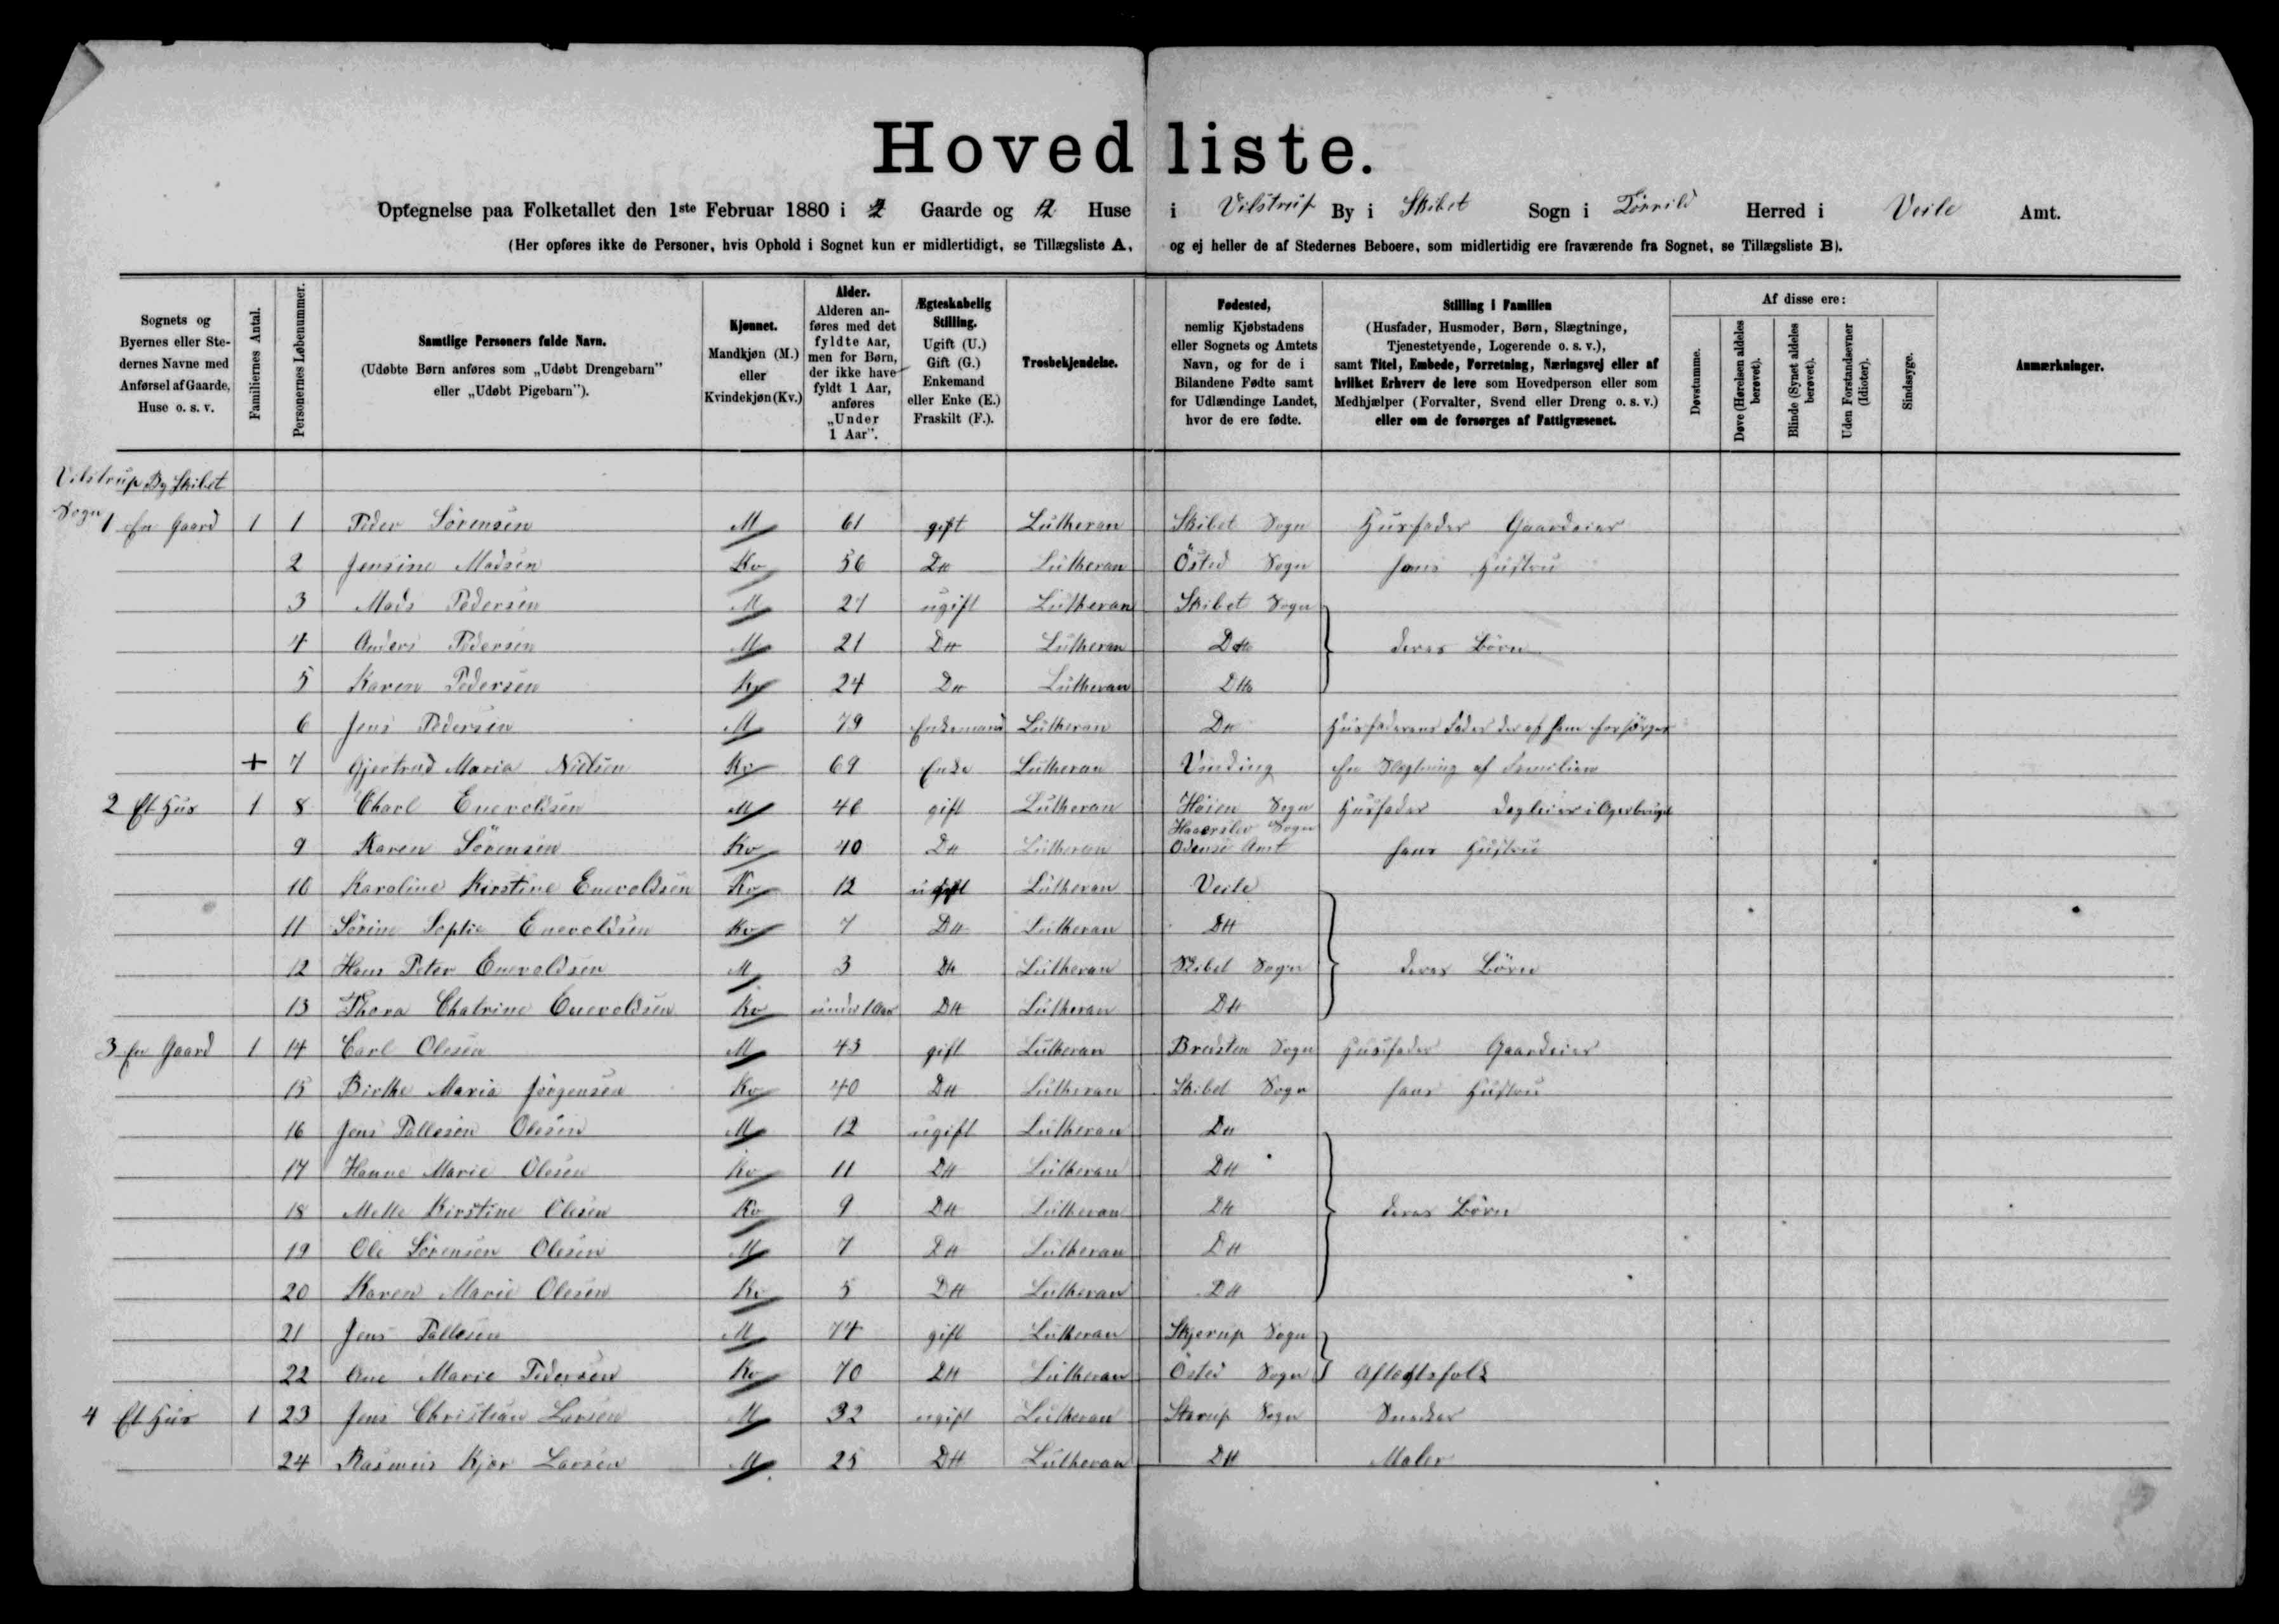 Hovedliste.
Optegnelse paa Folketallet den 1ste Februar 1880 i 2 Gaarde og 2 Huse i Vilstrup By i Skibet Sogn i Tørrild Herred i Veile Amt.
(Her opføres ikke de Personer, hvis Ophold i Sognet kun er midlertidigt, se Tillægsliste A, og ej heller de af Stedernes Beboere, som midlertidig ere fraværende fra Sognet, se Tillægsliste B).
Sognets og Byernes eller Stedernes Navne med Anførsel af Gaarde, Huse o. s. v.
Familiernes Antal.
Personernes Løbenummer.
Samtlige Personers fulde Navn.
(Udøbte Børn anføres som „Udøbt Drengebarn" eller „Udøbt Pigebarn").
Kjønnet.
Mandkjøn (M.) eller Kvindekjøn (Kv.)
Alder.
Alderen anføres med det fyldte Aar, men for Børn, der ikke have fyldt 1 Aar, anføres „Under 1 Aar".
Ægteskabelig Stilling.
Ugift (U.) Gift (G.) Enkemand eller Enke (E.) Fraskilt (F.).
Trosbekjendelse.
Fødested,
nemlig Kjøbstadens eller Sognets og Amtets Navn, og for de i Bilandene Fødte samt for Udlændinge Landet, hvor de ere fødte.
Stilling i Familien
(Husfader, Husmoder, Børn, Slægtninge, Tjenestetyende, Logerende o. s. v.),
samt Titel, Embede, Forretning, Næringsvej eller af hvilket Erhverv de leve som Hovedperson eller som Medhjælper (Forvalter, Svend eller Dreng o. s. v.) eller om de forsørges af Fattigvæsenet.
Af disse ere:
Døvstumme.
Døve (Hørelsen aldeles berøvet).
Blinde (Synet aldeles berøvet).
Uden Forstandsevner (Idioter).
Sindssyge.
Anmærkninger.
Vilstrup By Skibet
Sogn
1 En Gaard 1 1 Peder Sörensen M 61 gift Lutheran Skibet Sogn Husfader Gaardeier
2 Jensine Madsen Kv 56 Dtt Lutheran Östed Sogn hans Hustru
3 Mads Pedersen M 27 ugift Lutheran Skibet Sogn
4 Anders Pedersen M 21 Dtt Lutheran Dtto deres Börn
5 Karen Pedersen Kv 24 Dtt Lutheran Dtto
6 Jens Pedersen M 79 Enkemand Lutheran Dtt Husfaderens Fader der af ham forsörges
+ 7 Gjertrud Maria Nielsen Kv 69 Enke Lutheran Vinding En Slægtning af Familien
2 Et Hus 1 8 Charl Enevoldsen M 46 gift Lutheran Höien Sogn Husfader Dagleier i Agerbruget
9 Karen Sörensen Kv 40 Dtt Lutheran Haarslev Sogn Odense Amt hans Hustru
10 Karoline Kirstine Enevoldsen Kv 12 ugift Lutheran Veile
11 Sörine Sophie Enevoldsen Kv 7 Dtt Lutheran Dtt
12 Hans Peter Enevoldsen M 3 Dtt Lutheran Skibet Sogn deres Börn
13 Thora Chatrine Enevoldsen Kv under 1 Aar Dtt Lutheran Dtt
3 En Gaard 1 14 Carl Olesen M 43 gift Lutheran Bredsten Sogn Husfader Gaardeier
15 Birthe Maria Jörgensen Kv 40 Dtt Lutheran Skibet Sogn hans Hustru
16 Jens Pallesen Olesen M 12 ugift Lutheran Dtt
17 Hanne Marie Olesen Kv 11 Dtt Lutheran Dtt
18 Mette Kirstine Olesen Kv 9 Dtt Lutheran Dtt deres Börn
19 Ole Sörensen Olesen M 7 Dtt Lutheran Dtt
20 Karen Marie Olesen Kv 5 Dtt Lutheran Dtt
21 Jens Pallesen M 74 gift Lutheran Skjerup Sogn
22 Ane Marie Pedersen Kv 70 Dtt Lutheran Östed Sogn Aftegtsfolk
4 Et Hus 1 23 Jens Christian Larsen M 32 ugift Lutheran Starup Sogn Snedker
24 Rasmus Kjær Larsen M 25 Dtt Lutheran Dtt Maler